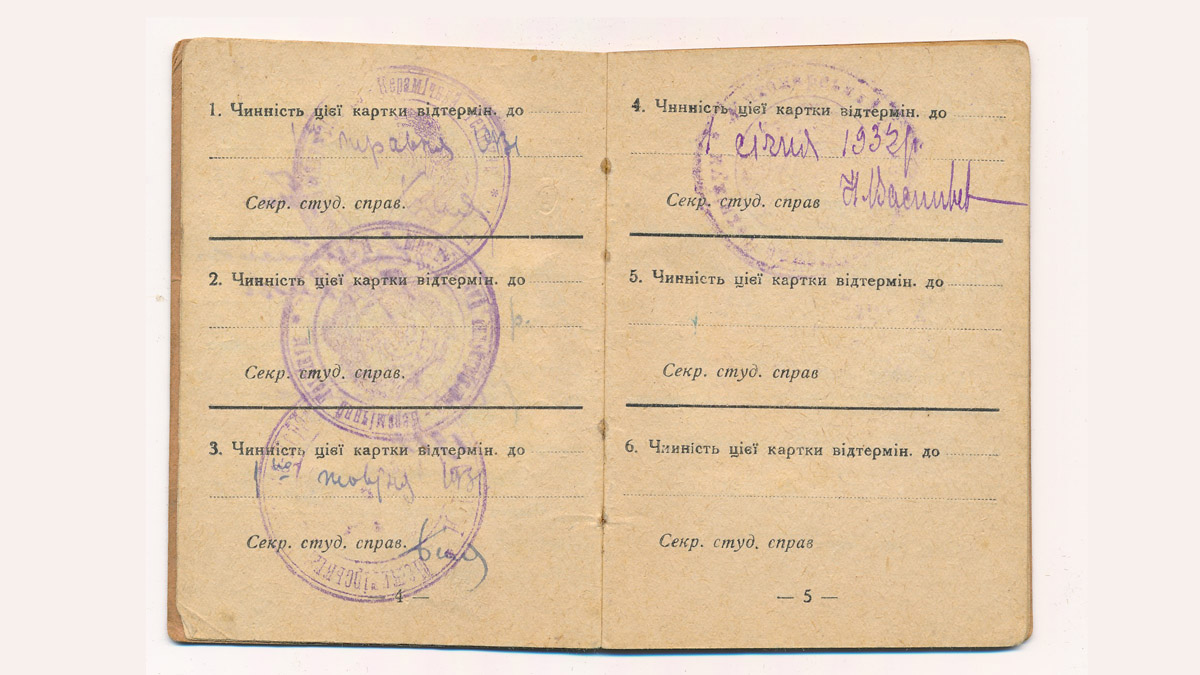 1. Чинність цієї картки відтермін. до
1 травня 1931
Секр. студ. справ.
2. Чинність цієї картки відтермін. до
р.
Секр. студ. справ.
3. Чинність цієї картки відтермін. до
1 жовтня 1931
Секр. студ. справ.
— 4 —
4. Чинність цієї картки відтермін. до
1 січня 1932 р.
Секр. студ. справ
5. Чинність цієї картки відтермін. до
Секр. студ. справ
6. Чинність цієї картки відтермін. до
Секр. студ. справ
— 5 —